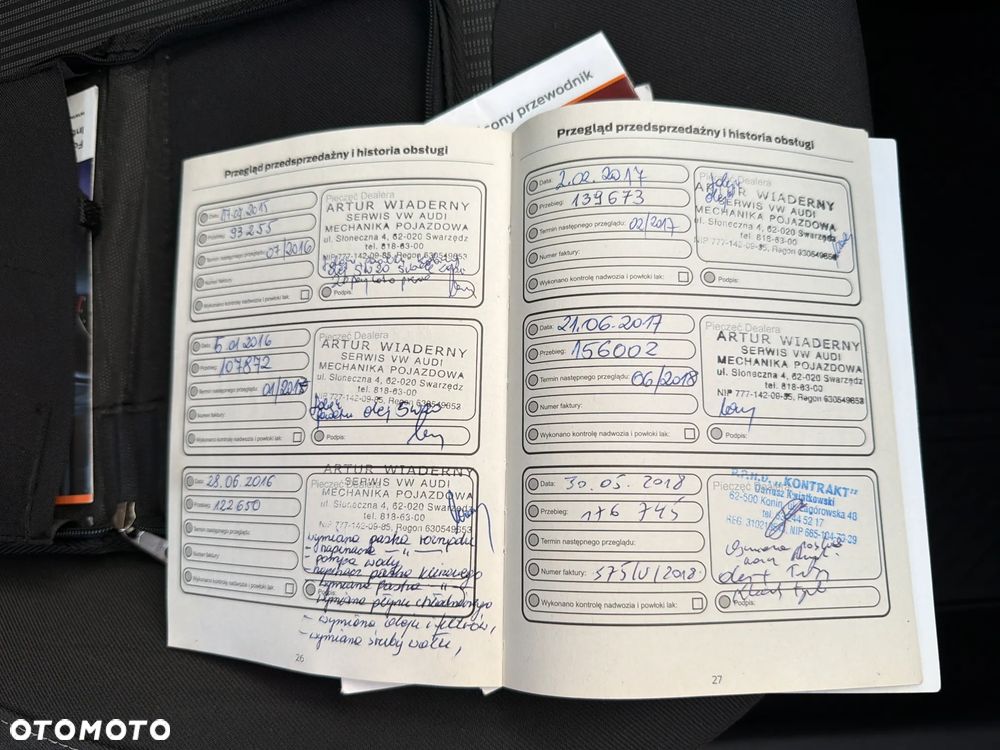 sony przewodnik
Przegląd przedsprzedażny i historia obsługi
Data: 17.07.2015
Przebieg: 93255
Termin następnego przeglądu: 07/2016
Numer faktury:
Wykonano kontrolę nadwozia i powłoki lak:
Pieczęć Dealera
ARTUR WIADERNY
SERWIS VW AUDI
MECHANIKA POJAZDOWA
ul. Słoneczna 4, 62-020 Swarzędz
tel. 818-63-00
NIP 777-142-09-85, Regon 630549853
Podpis:
Data: 5.01.2016
Przebieg: 107872
Termin następnego przeglądu: 01/2017
Numer faktury:
Wykonano kontrolę nadwozia i powłoki lak:
Pieczęć Dealera
ARTUR WIADERNY
SERWIS VW AUDI
MECHANIKA POJAZDOWA
ul. Słoneczna 4, 62-020 Swarzędz
tel. 818-63-00
NIP 777-142-09-85, Regon 630549853
olej
Podpis:
Data: 28.06.2016
Przebieg: 122650
Termin następnego przeglądu:
Numer faktury:
Wykonano kontrolę nadwozia i powłoki lak:
ARTUR WIADERNY
Pieczęć Dealera
SERWIS VW AUDI
MECHANIKA POJAZDOWA
ul. Słoneczna 4, 62-020 Swarzędz
tel. 818-63-00
NIP 777-142-09-85, Regon 630549853
wymiana paska rozrządu
- napinacza - " -
- pompa wody
- napinacz paska klinowego
- wymiana paska - " -
- wymiana płynu chłodniczego
- wymiana oleju i filtrów,
- wymiana śruby wału,
26
Przegląd przedsprzedażny i historia obsługi
Data: 2.02.2017
Przebieg: 139673
Termin następnego przeglądu: 02/2017
Numer faktury:
Wykonano kontrolę nadwozia i powłoki lak:
Pieczęć Dealera
ARTUR WIADERNY
SERWIS VW AUDI
MECHANIKA POJAZDOWA
ul. Słoneczna 4, 62-020 Swarzędz
tel. 818-63-00
NIP 777-142-09-85, Regon 630549853
Podpis:
Data: 21.06.2017
Przebieg: 156002
Termin następnego przeglądu: 06/2018
Numer faktury:
Wykonano kontrolę nadwozia i powłoki lak:
Pieczęć Dealera
ARTUR WIADERNY
SERWIS VW AUDI
MECHANIKA POJAZDOWA
ul. Słoneczna 4, 62-020 Swarzędz
tel. 818-63-00
NIP 777-142-09-85, Regon 630549853
Podpis:
Data: 30.05.2018
Przebieg: 176 745
Termin następnego przeglądu:
Numer faktury: 575/V/2018
Wykonano kontrolę nadwozia i powłoki lak:
Pieczęć Dealera
P.P.H.U. „KONTRAKT”
Dariusz Kwiatkowski
62-500 Konin
Podpis:
27
OTOMOTO